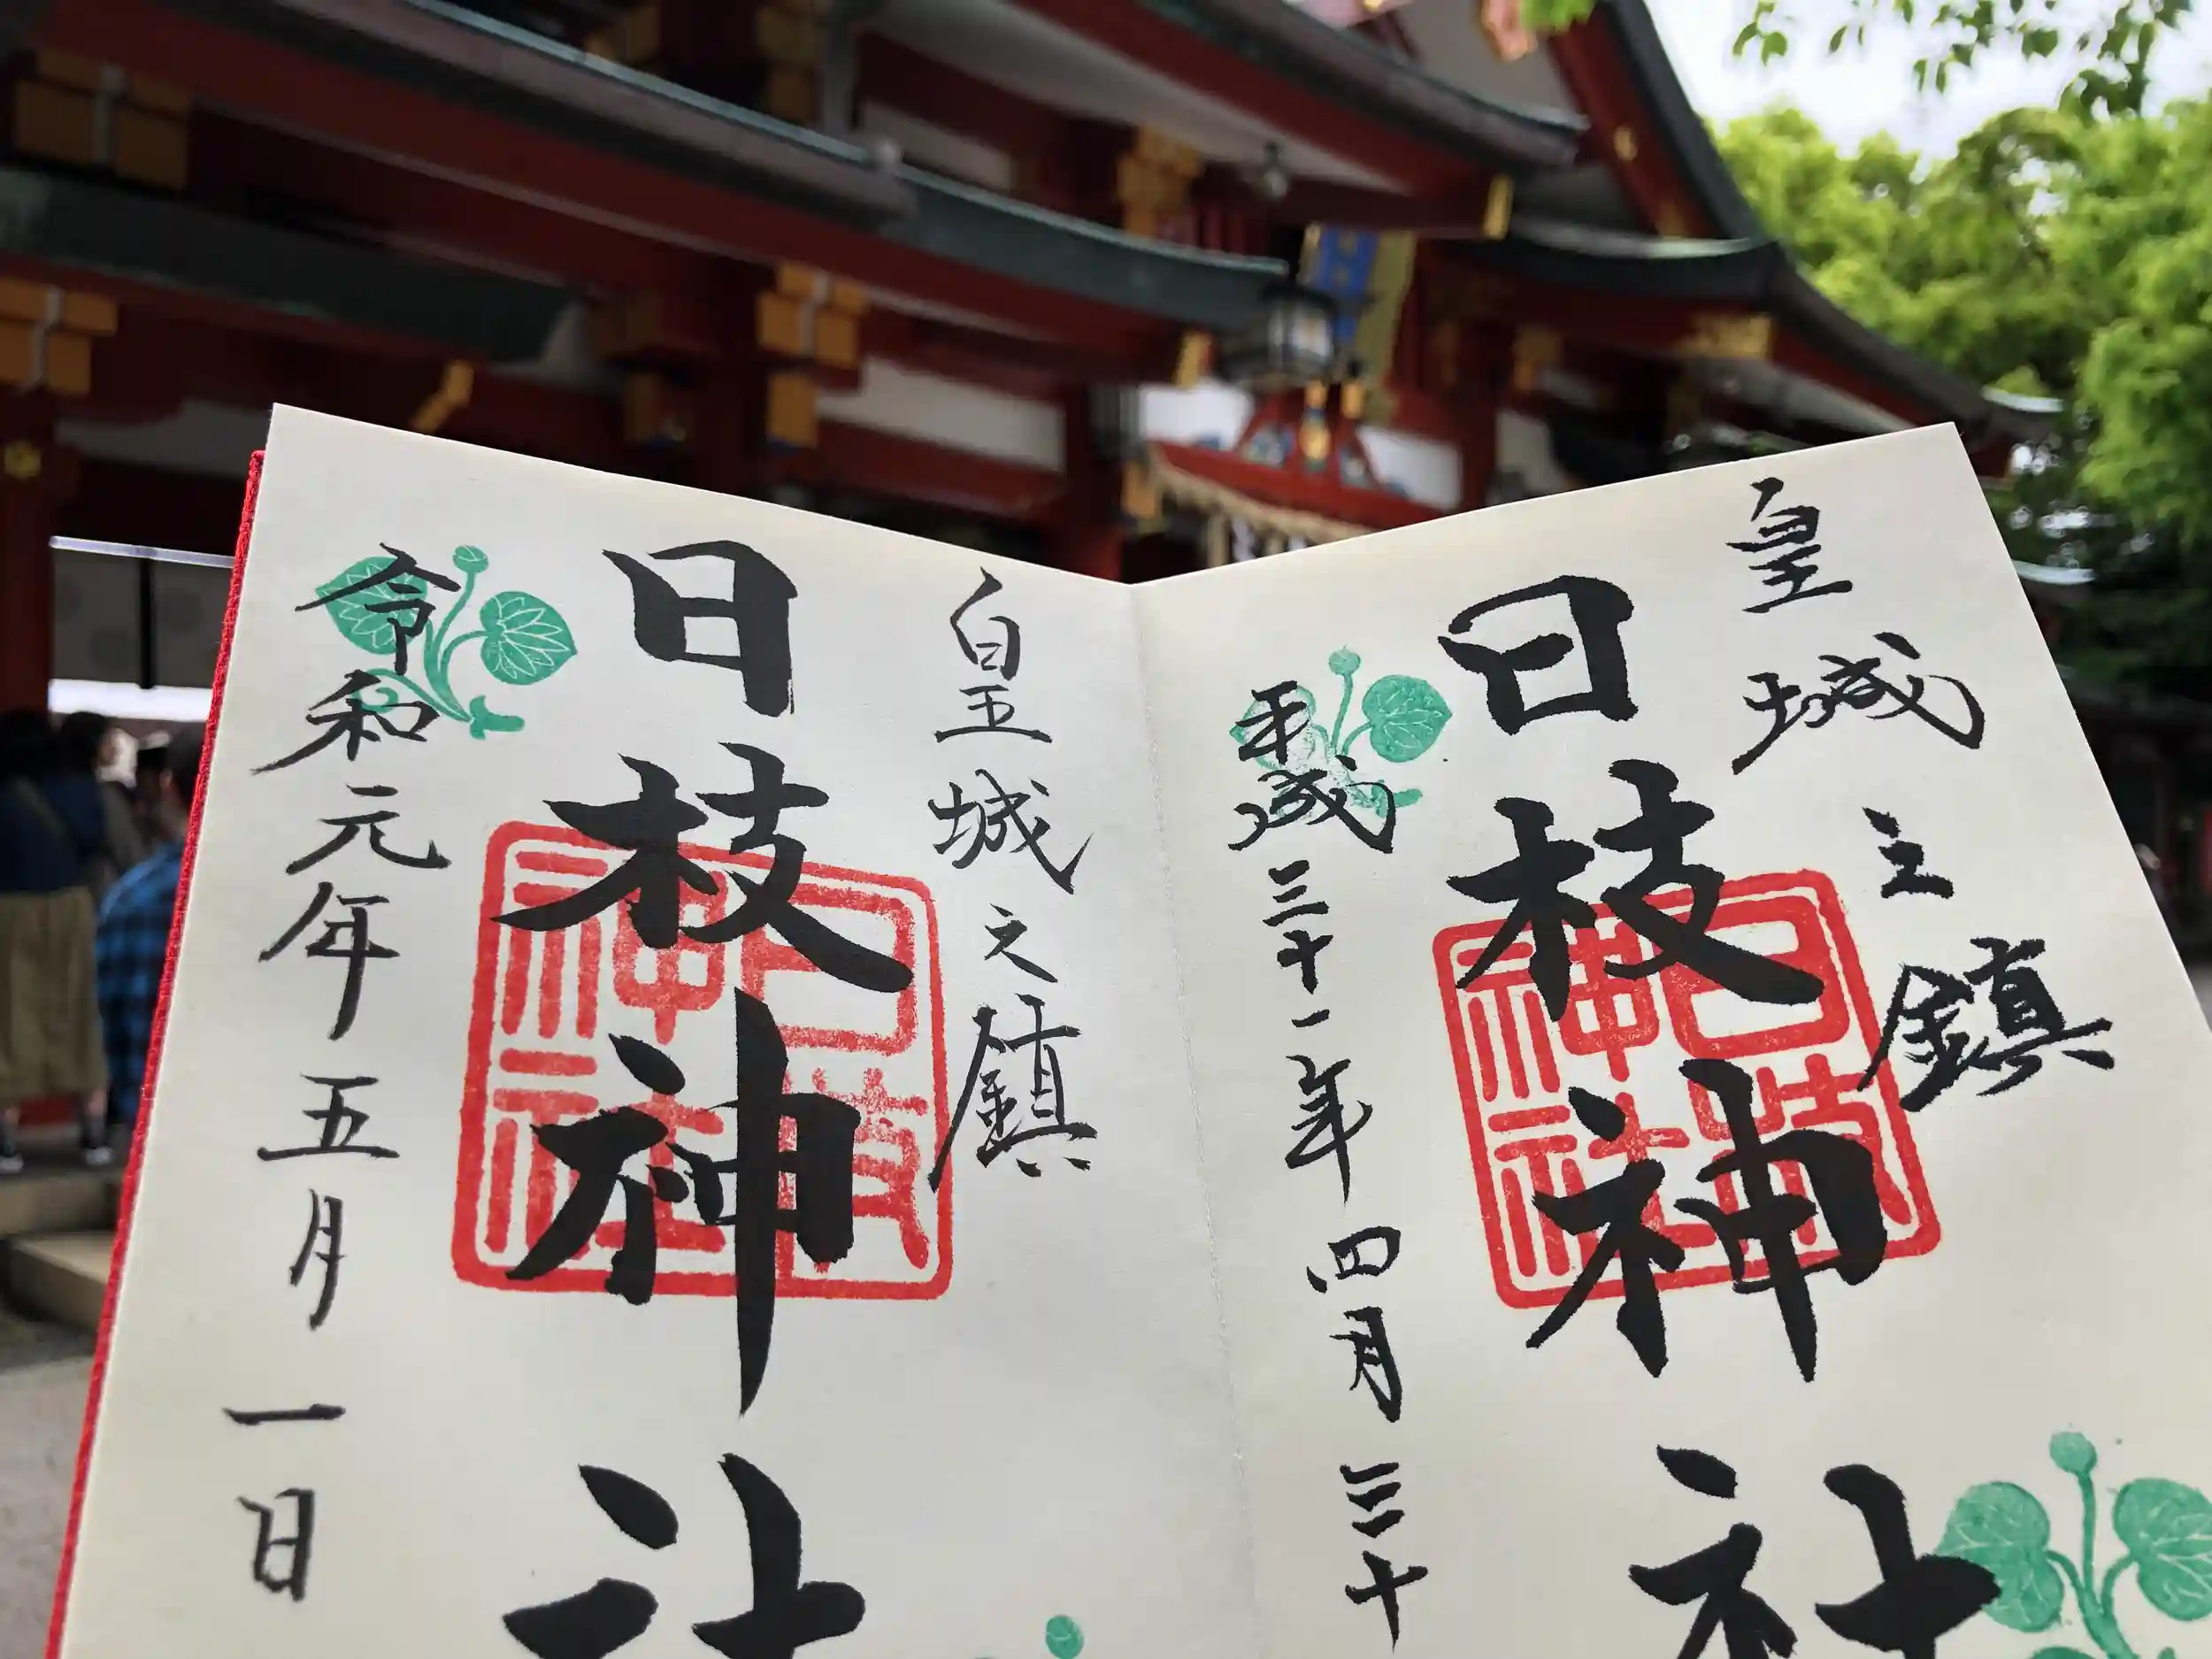 皇城之鎮
日枝神社
平成三十一年四月三十
皇城之鎮
日枝神社
令和元年五月一日
日枝神社
日枝神社